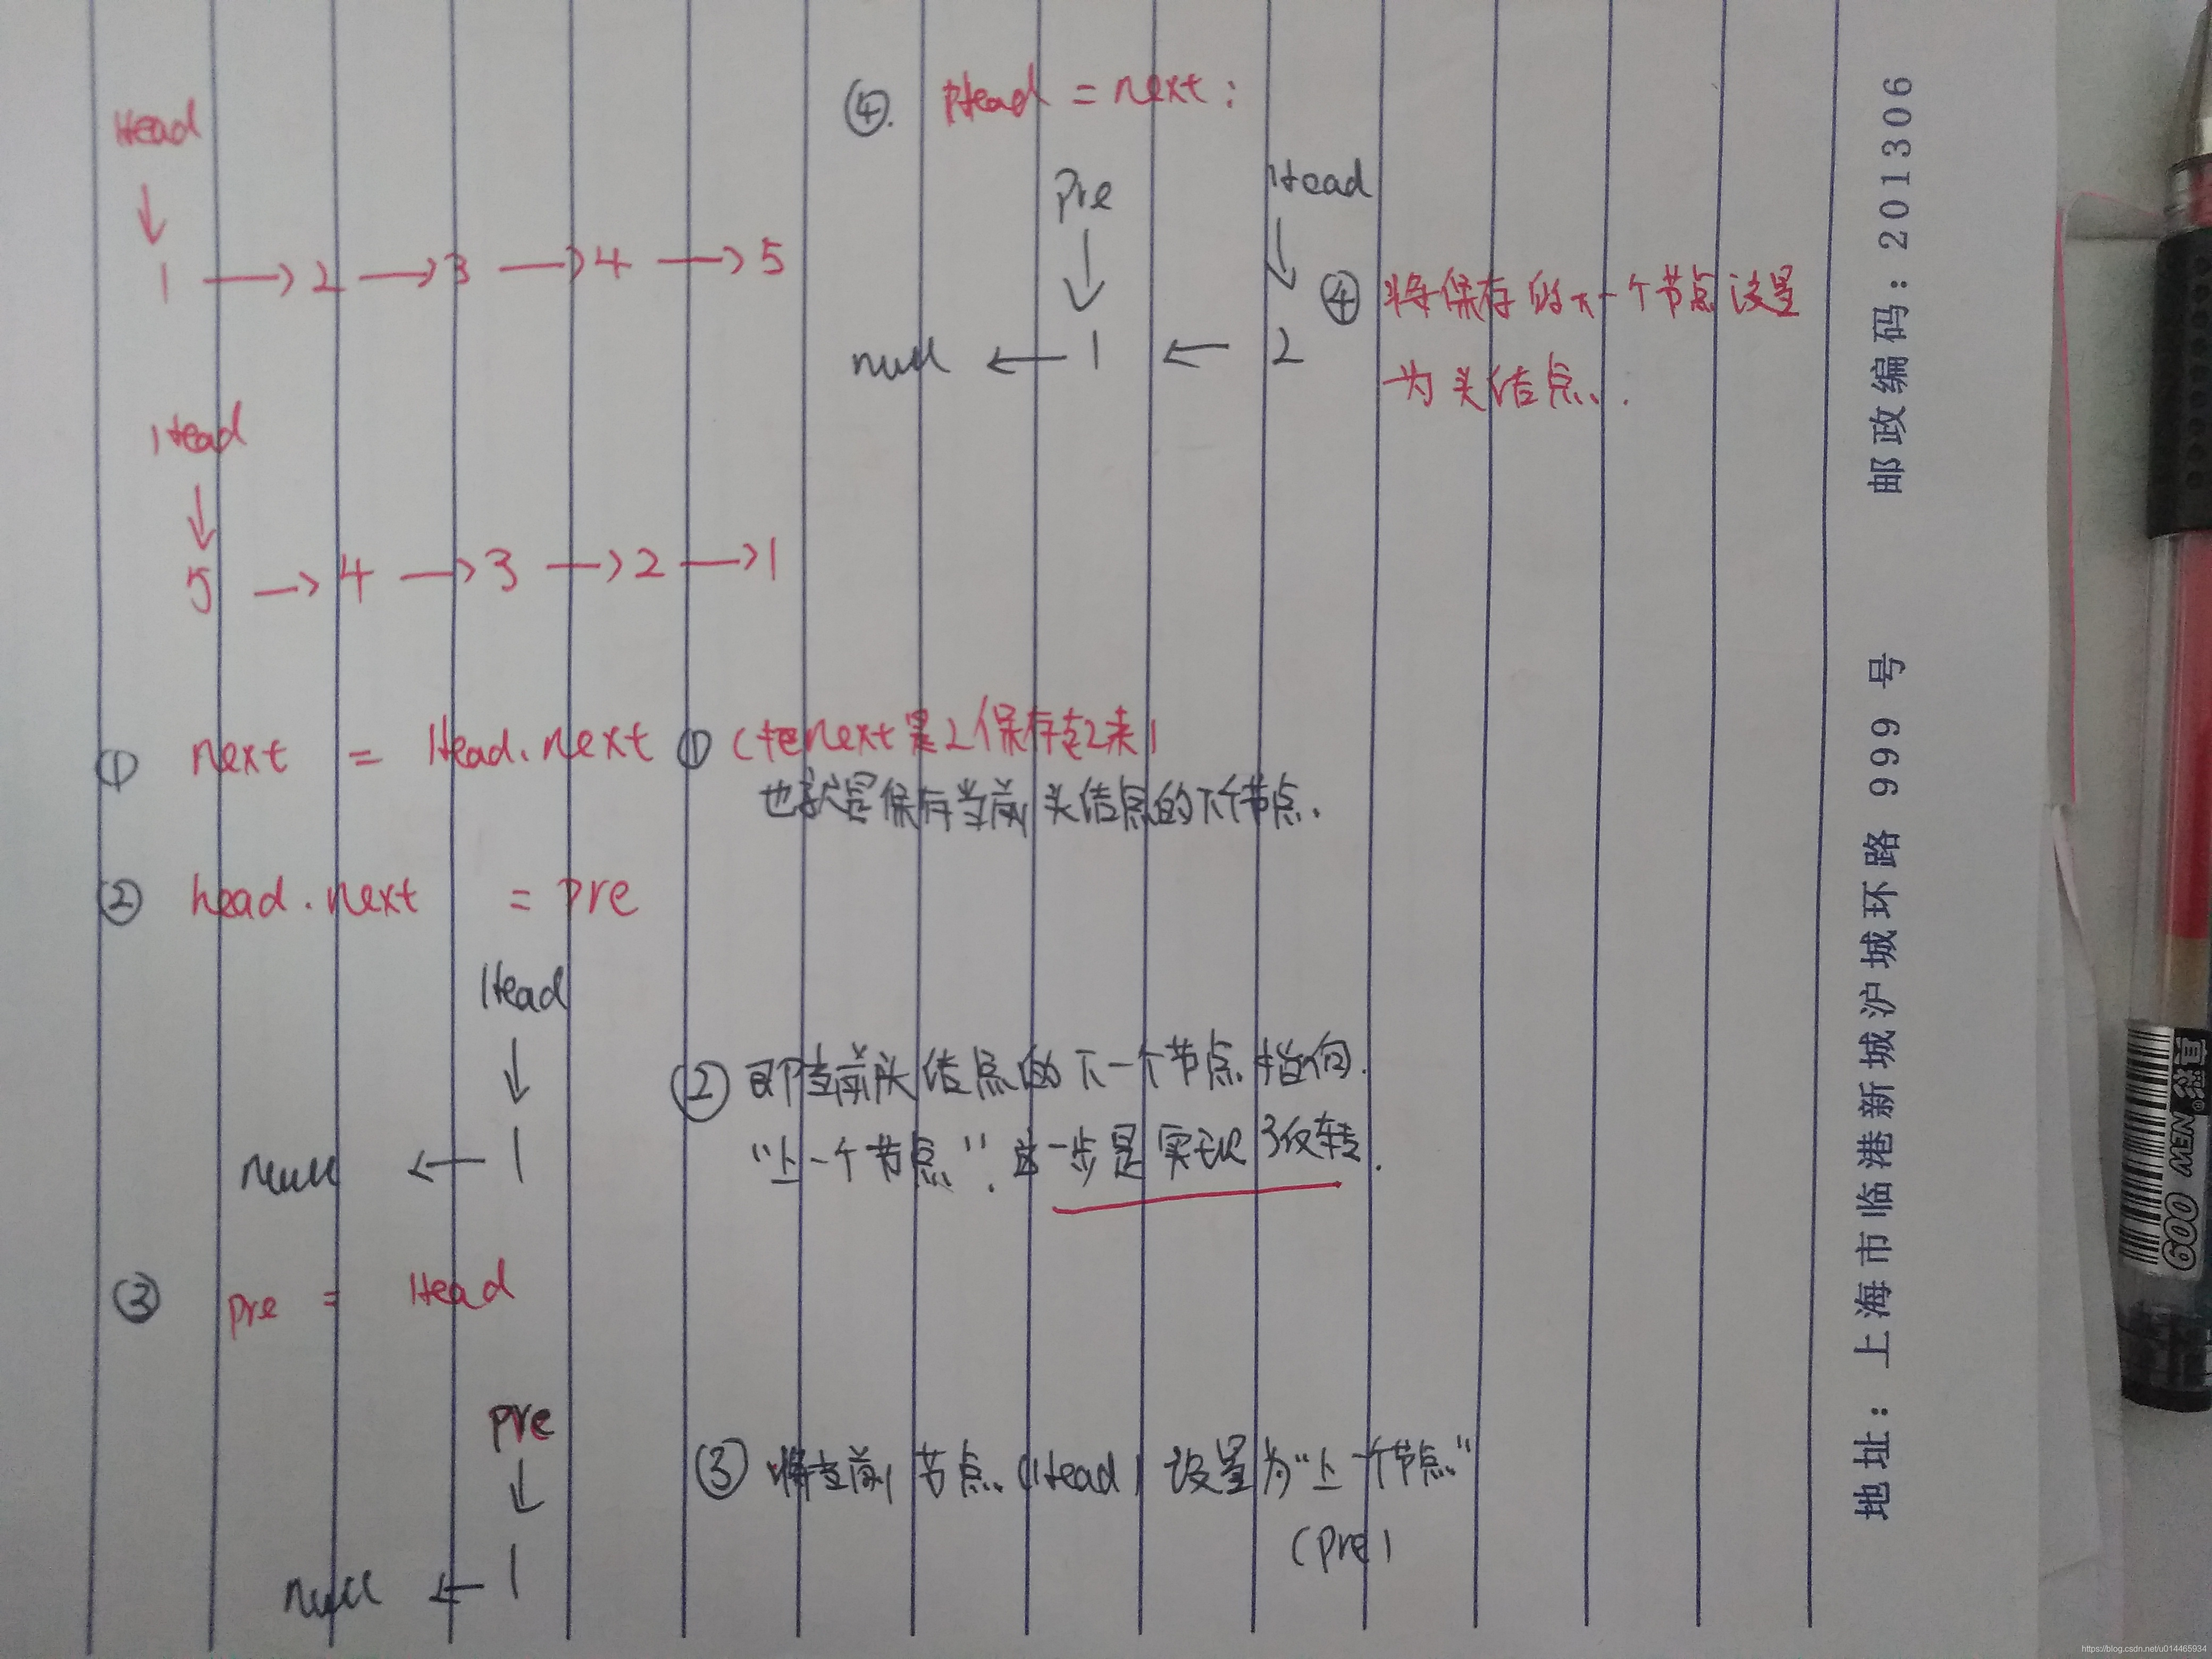 Head
↓
1 → 2 → 3 → 4 → 5
Head
↓
5 → 4 → 3 → 2 → 1
① next = Head.next ① (把next是2保存起来)
也就是保存当前头结点的下个节点.
② head.next = pre
Head
↓
null ← 1
② 即当前头结点的下一个节点指向.
“上一个节点”. 这一步是实现了反转.
③ pre = Head
pre
↓
null ← 1
③ 将当前节点(Head)设置为“上一个节点”
(pre)
④. Head = next:
Pre Head
↓ ↓
null ← 1 ← 2
④ 将保存的下一个节点设置
为头结点.
地址: 上海市临港新城沪城环路 999 号 邮政编码: 201306
真彩®
NEW
009
https://blog.csdn.net/u014465934